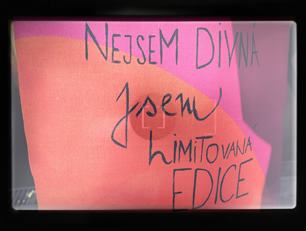 NEJSEM DIVNÁ
jsem
LIMITOVANÁ
EDICE